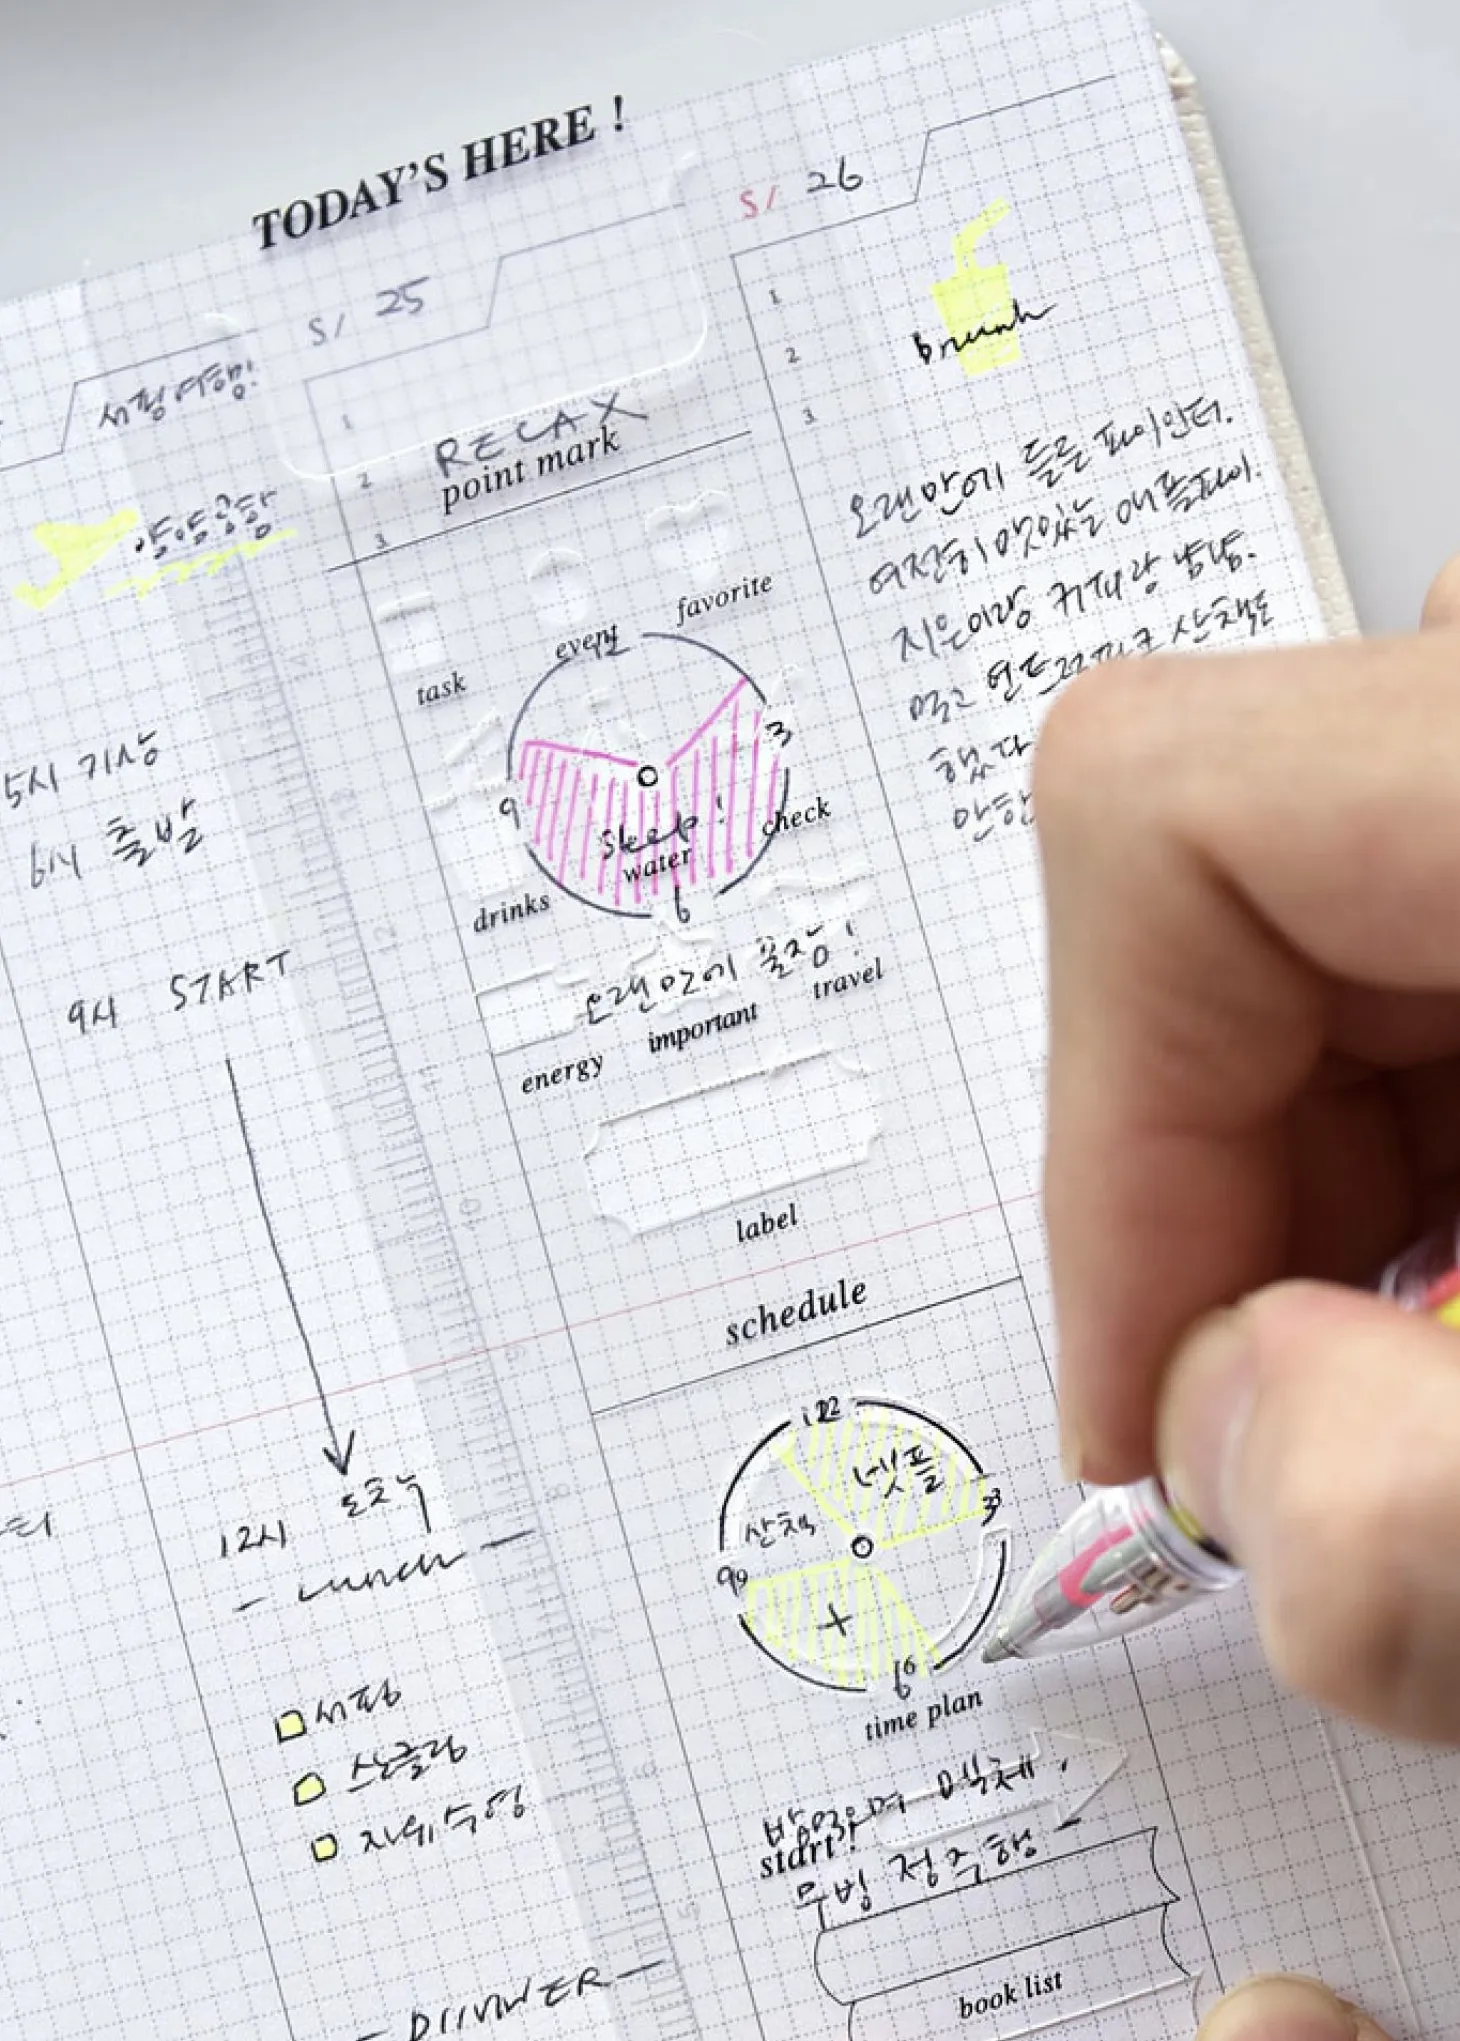 TODAY'S HERE !
서핑여행!
양양공항
5시 기상
6시 출발
9시 START
12시 도착
- Lunch -
서핑
스노클링
자유수영
- DINNER -
5/ 25
1
RELAX
2
3
point mark
task
event
favorite
3
9
Sleep!
check
water
drinks
6
오랜만에 꿀잠!
energy
important
travel
label
schedule
12
넷플
3
산책
9
6
time plan
밤먹으며
start!
무빙 정주행 -
book list
5/ 26
1
brunch
2
3
오랜만에 들른 파이인터.
여전히 맛있는 애플파이.
지은이랑 커피랑 냠냠.
먹고 산책도
했다
13
12
11
10
9
8
7
6
5